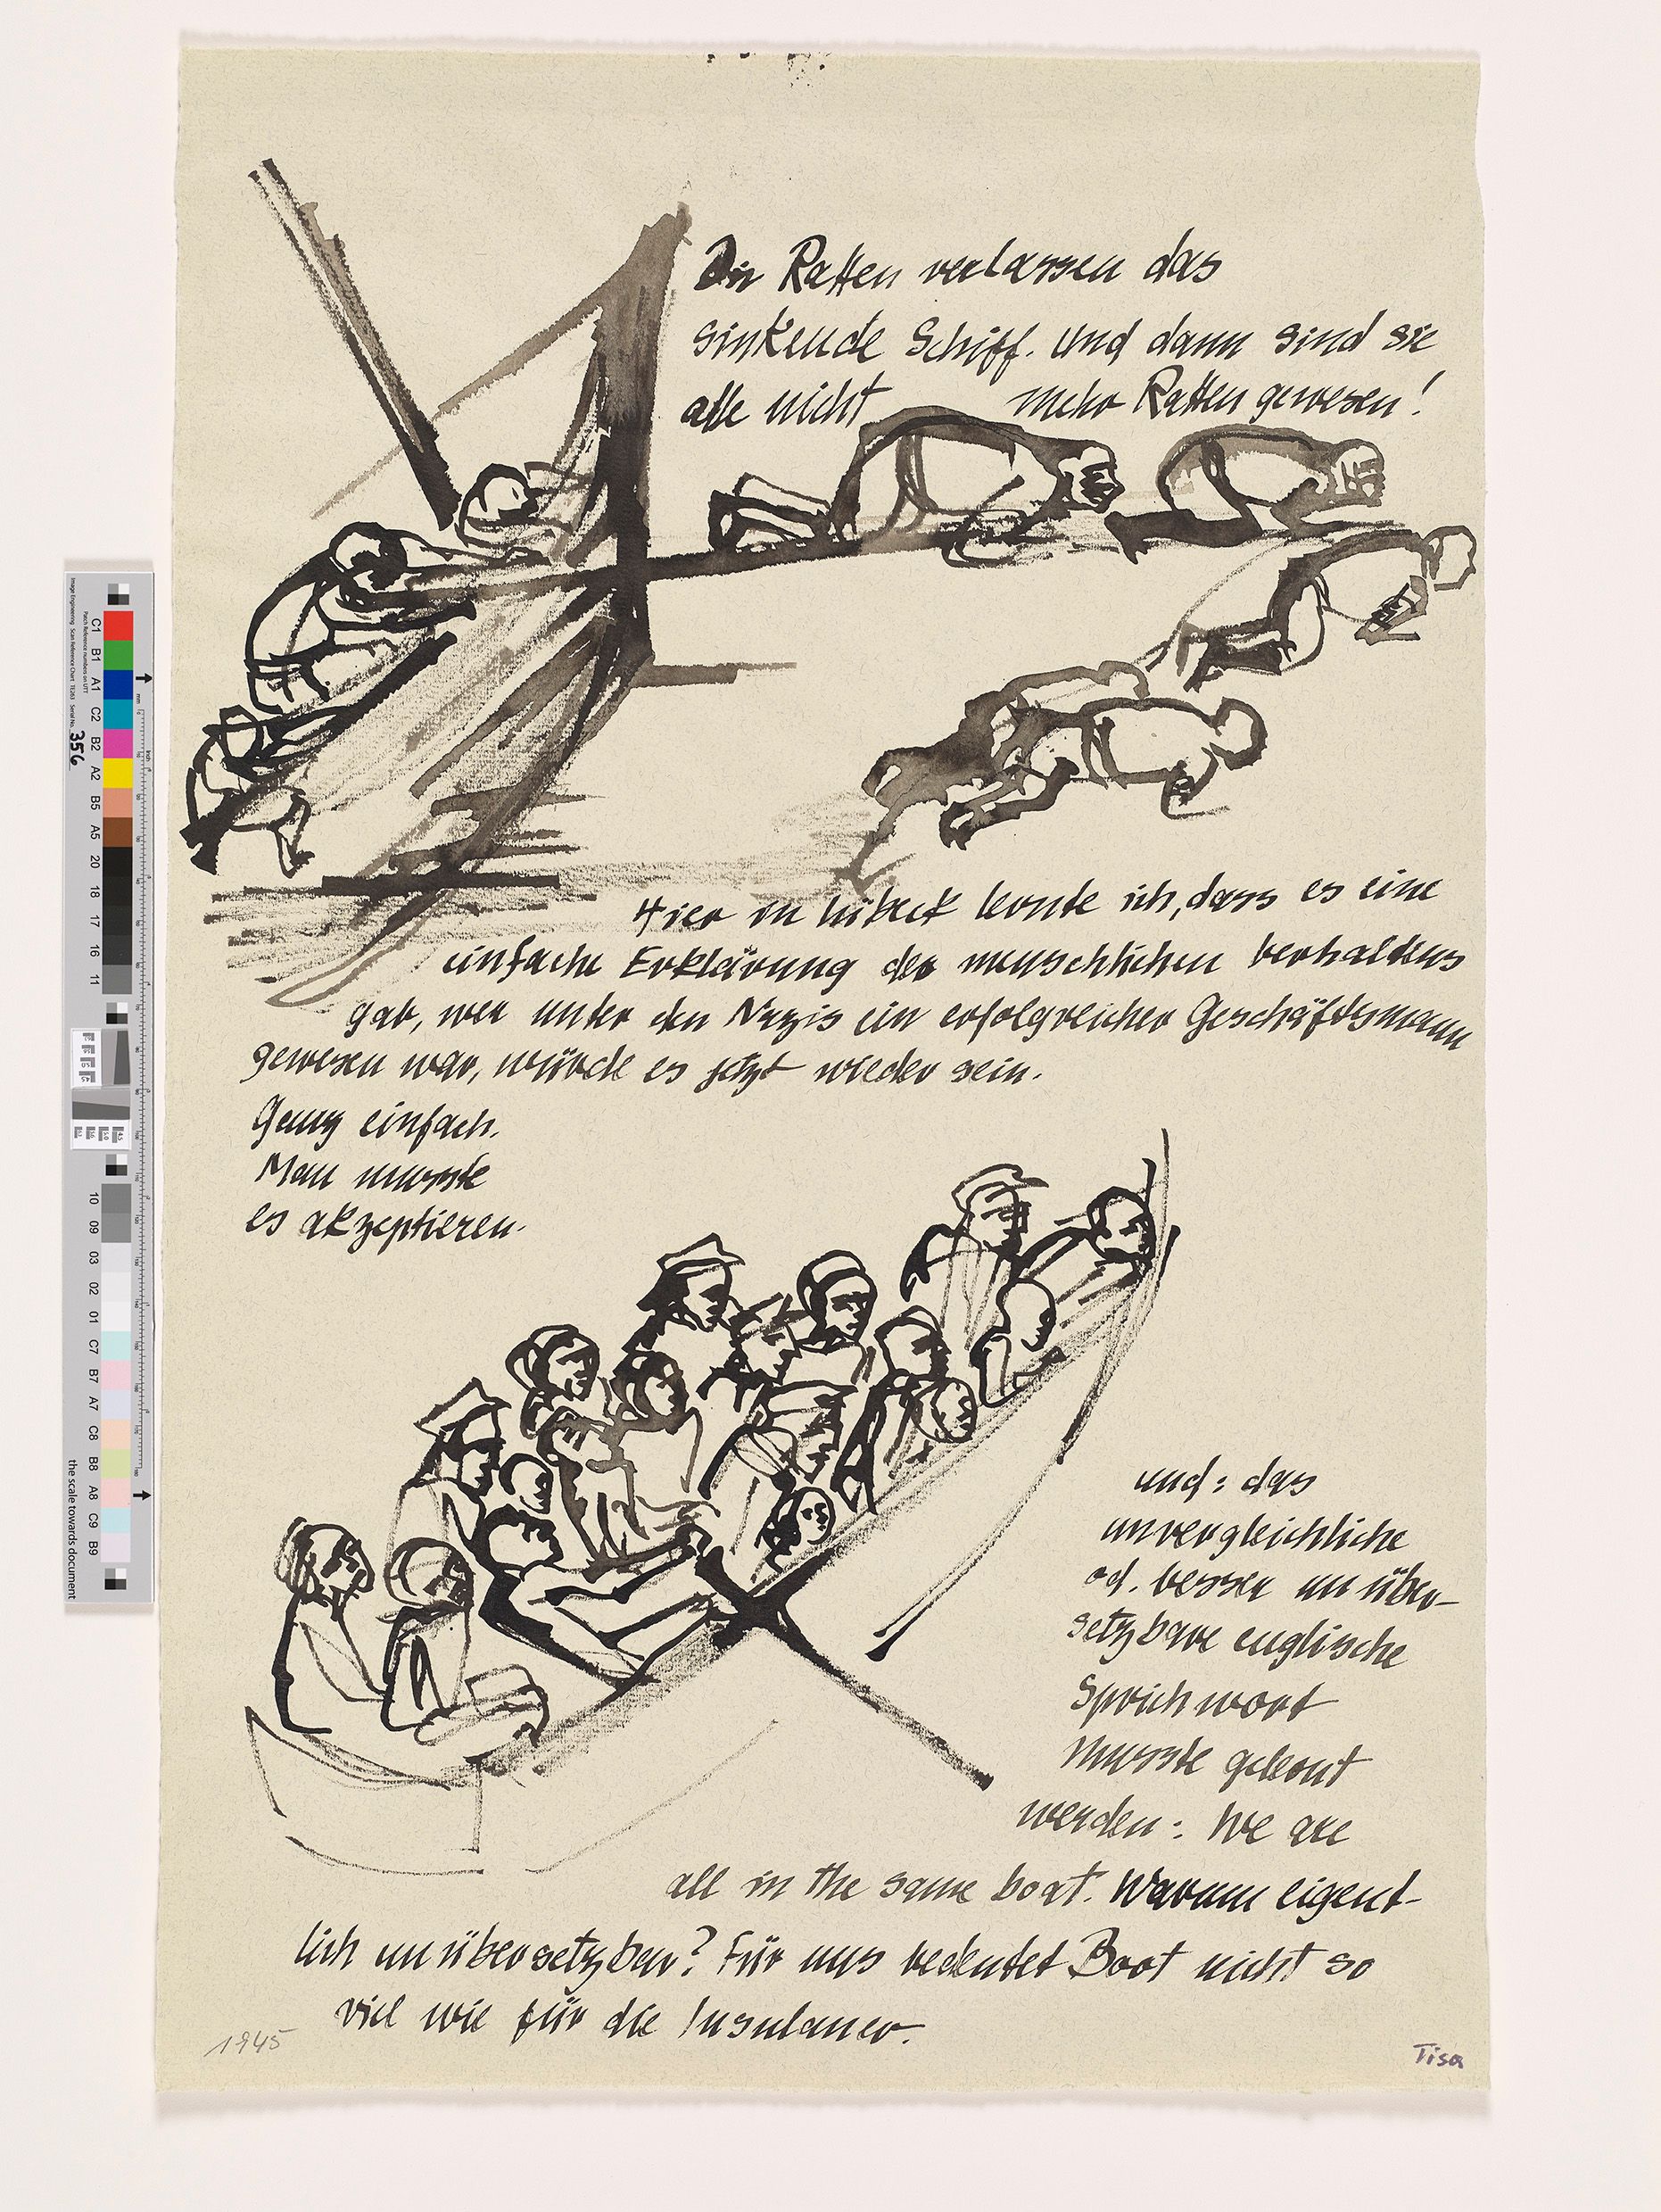 Die Ratten verlassen das
sinkende Schiff. Und dann sind sie
alle nicht mehr Ratten gewesen!
Hier in Lübeck lernte ich, dass es eine
einfache Erklärung des menschlichen Verhaltens
gab, wer unter den Nazis ein erfolgreicher Geschäftsmann
gewesen war, würde es jetzt wieder sein.
Ganz einfach.
Man musste
es akzeptieren.
und: das
unvergleichliche
od. besser unüber-
setzbare englische
Sprichwort
musste gelernt
werden: We are
all in the same boat. Warum eigent-
lich unübersetzbar? Für uns bedeutet Boot nicht so
viel wie für die Insulaner.
1945
Tisa
356
C1 B1 A1 C2 B2 A2 B5 A5 20 18 17 16 11
10 09 03 02 01 C7 B7 A7 C8 B8 A8 C9 B9
the scale towards document